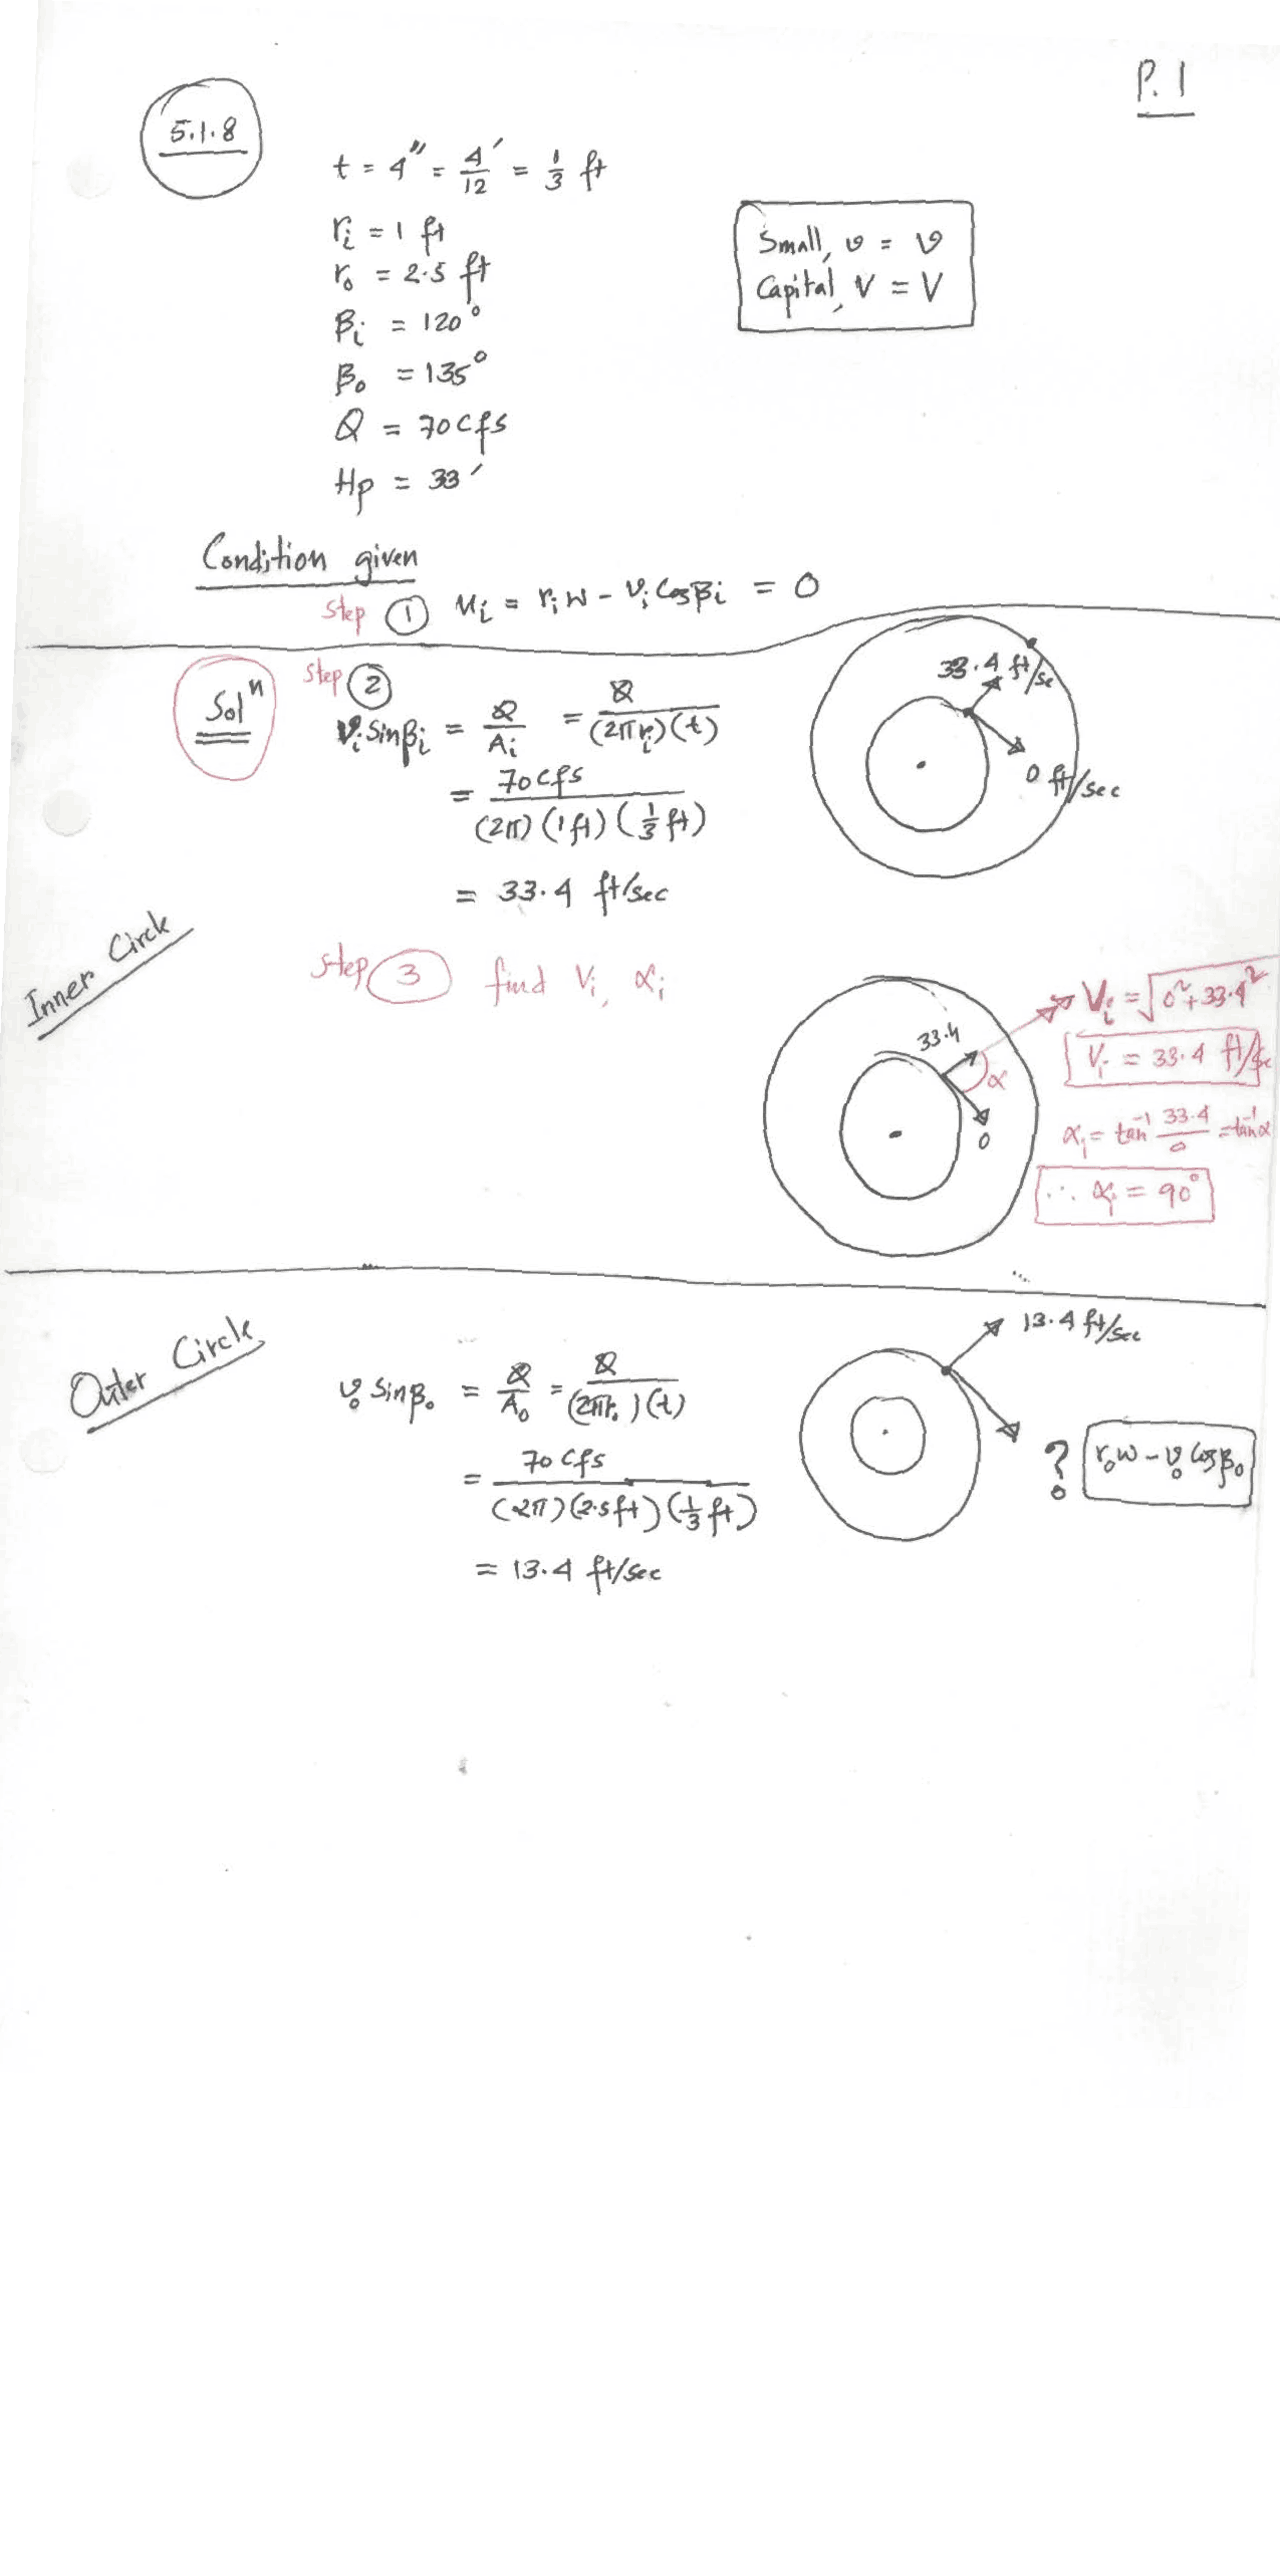 P. 1
5.1.8
t = 4" = 4'/12 = 1/3 ft
rᵢ = 1 ft
r₀ = 2.5 ft
βᵢ = 120°
β₀ = 135°
Q = 70 cfs
Hp = 33'
Small, v = v
Capital, V = V
Condition given
Step ① uᵢ = rᵢ w - vᵢ Cosβᵢ = 0
Solⁿ
Step ②
vᵢ Sinβᵢ = Q/Aᵢ = Q/(2πrᵢ)(t)
= 70 cfs/(2π)(1 ft)(1/3 ft)
= 33.4 ft/sec
33.4 ft/se
0 ft/sec
Inner Circle
Step ③ find Vᵢ, αᵢ
33.4
α
0
Vᵢ = √0² + 33.4²
Vᵢ = 33.4 ft/sec
αᵢ = tan⁻¹ 33.4/0 = tan⁻¹ α
∴ αᵢ = 90°
Outer Circle
v₀ Sinβ₀ = Q/A₀ = Q/(2πr₀)(t)
= 70 cfs/(2π)(2.5 ft)(1/3 ft)
= 13.4 ft/sec
13.4 ft/sec
? r₀w - v₀ Cosβ₀